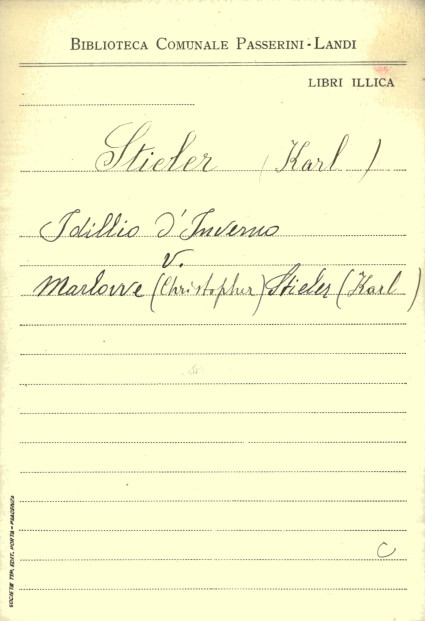 BIBLIOTECA COMUNALE PASSERINI-LANDI
LIBRI ILLICA
Stieler (Karl)
Idillio d'Inverno
V.
Marlowe (Christopher) Stieler (Karl)
C
SOCIETÀ TIP. EDIT. PORTA - PIACENZA